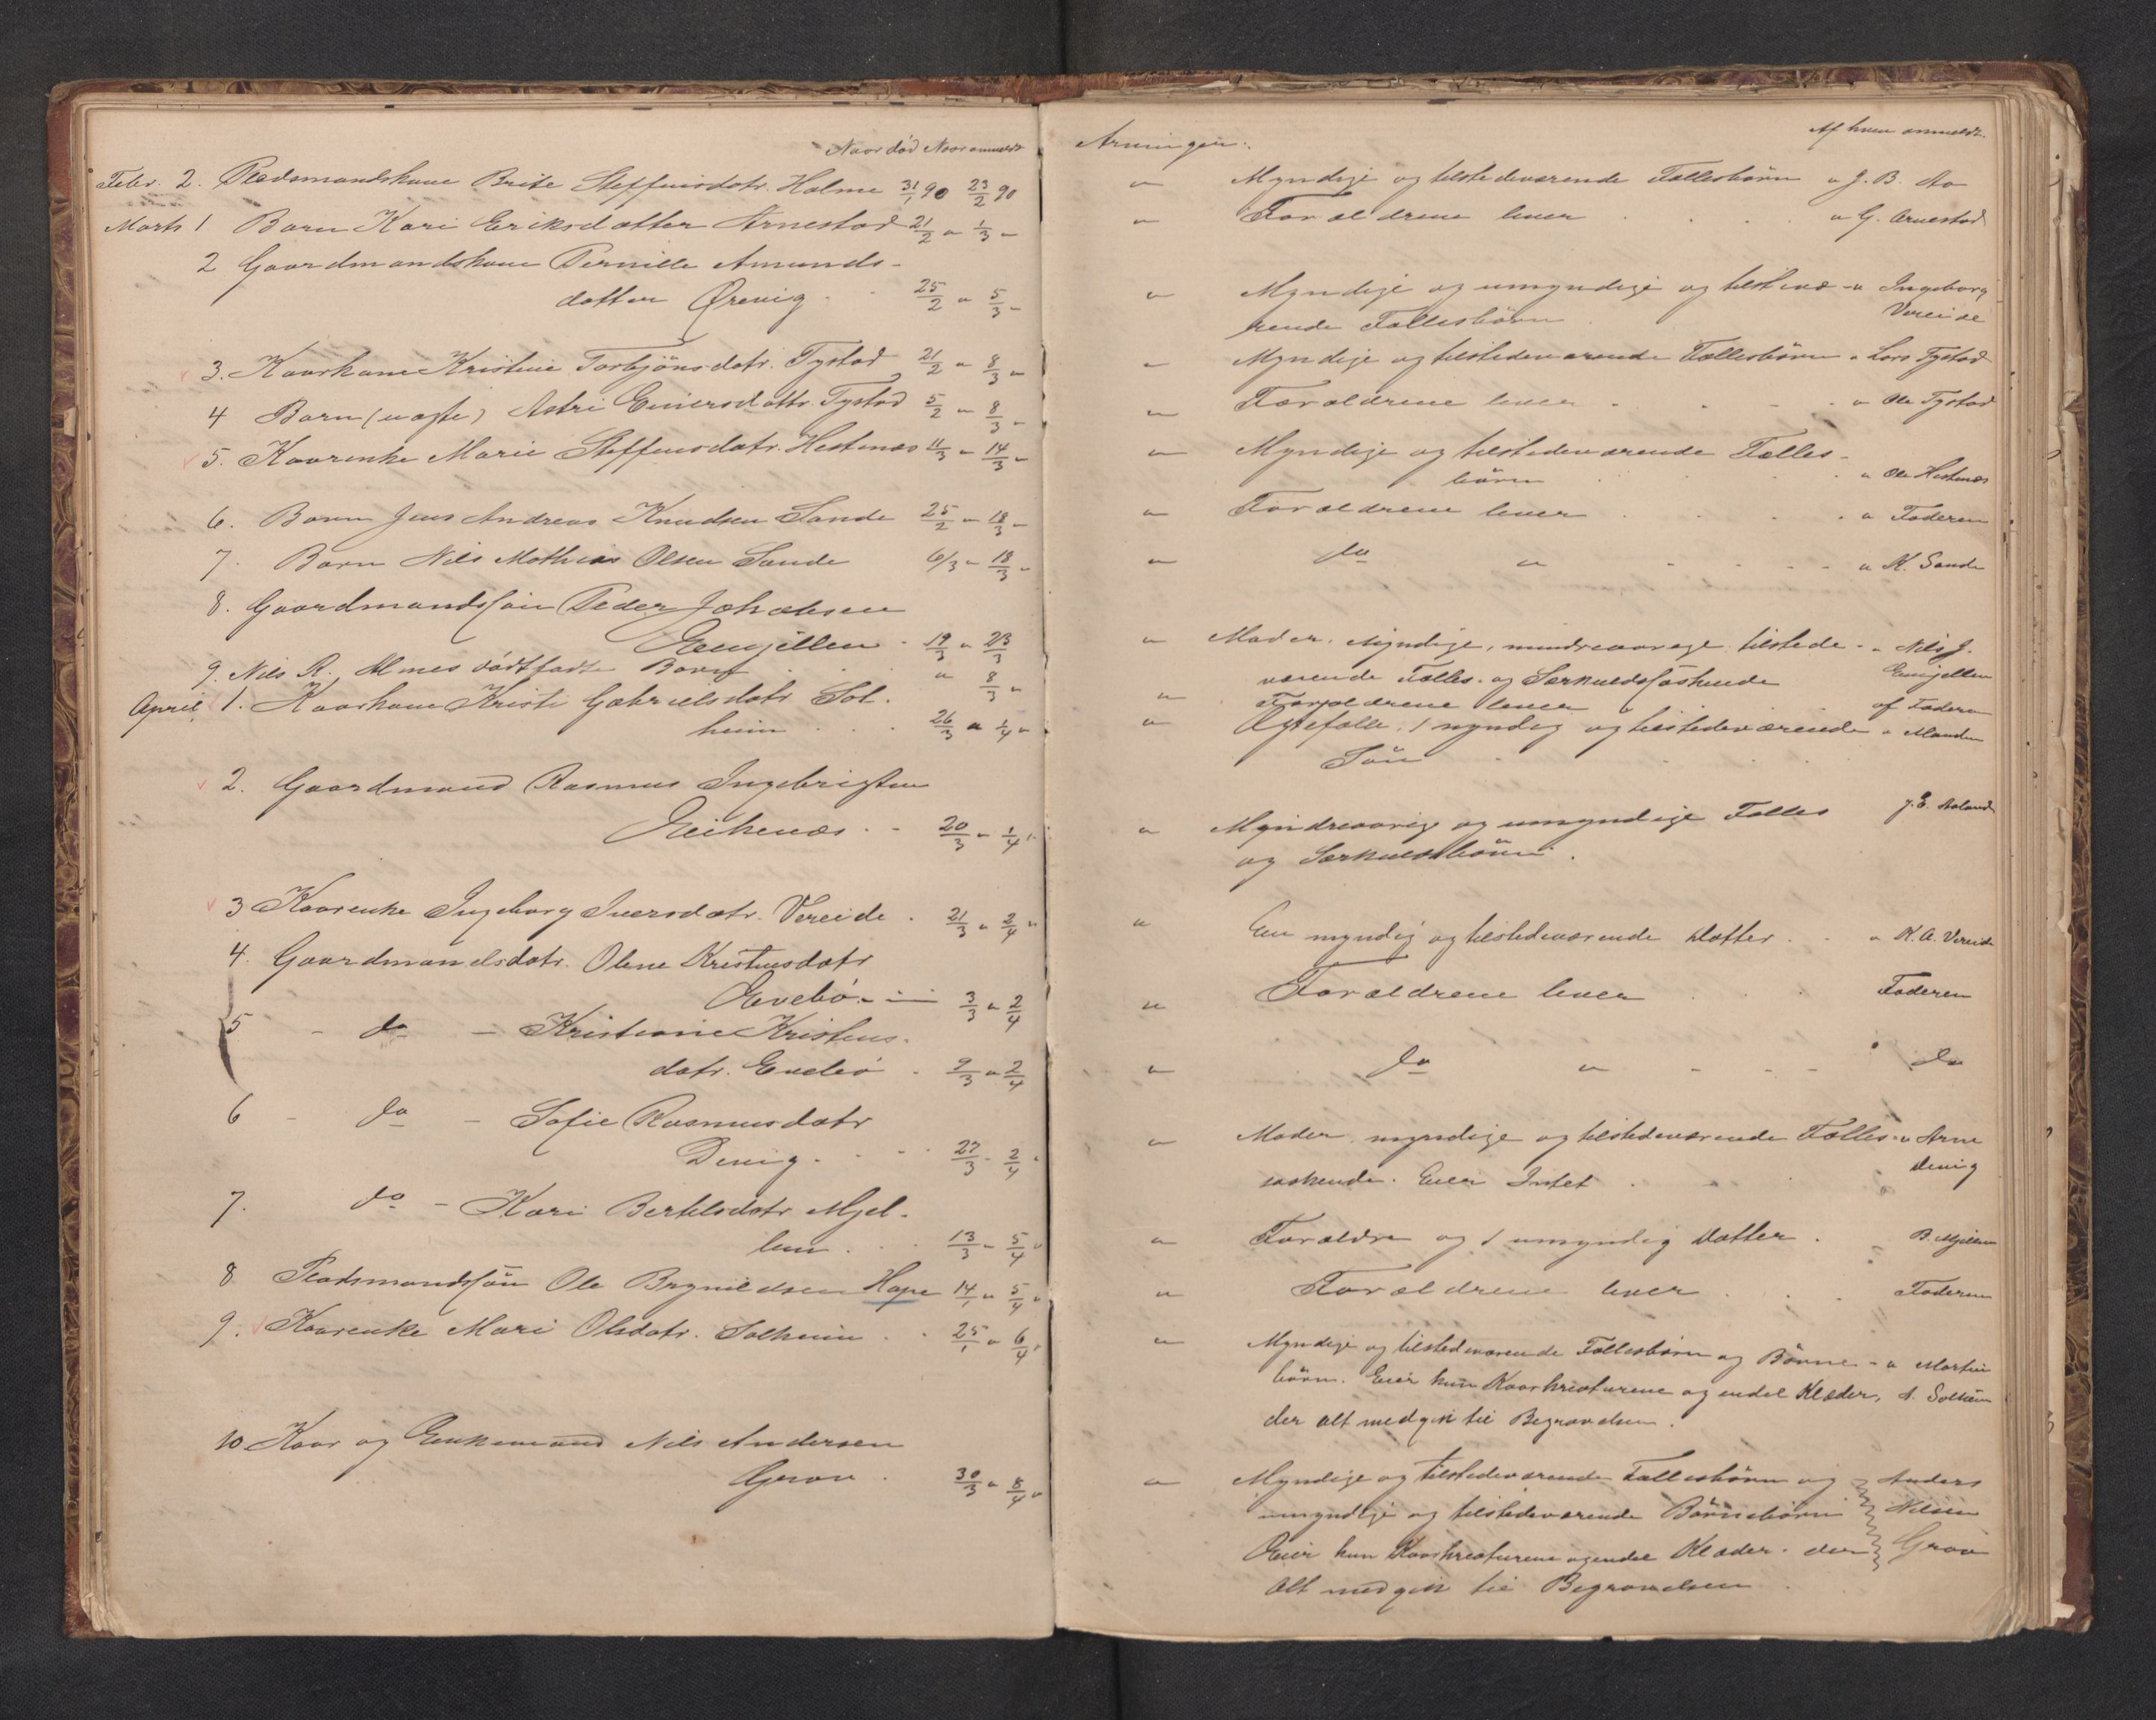 Naar død Naar anmeldt
Febr. 2. Pladsmandskone Brite Steffensdatr. Holme 31/1 90 23/2 90
Marts 1 Barn Kari Eriksdatter Arnestad 21/2 " 1/3 "
2 Gaardmandskone Pernille Amunds-
datter Ørevig 25/2 " 5/3 "
3. Kaarkone Kristine Torbjönsdatr. Tystad 21/2 " 8/3 "
4 Barn (uægte) Astri Einersdattr. Tystad 5/2 " 8/3 "
5. Kaarenke Marie Steffensdatr. Hestenæs 11/3 " 14/3 "
6. Barn Jens Andreas Knudsen Sande 25/2 " 18/3 "
7. Barn Nils Mathias Olsen Sande 6/3 " 18/3 "
8. Gaardmandssön Peder Johansen
Eenjellen 19/3 " 23/3
9. Nils R. Almes dödfödte Barn " 8/3 "
April 1. Kaarkone Kristi Gabrielsdatr Sol-
heim 26/3 " 1/4 "
2. Gaardmand Rasmus Ingebrigtsen
Eikenæs 20/3 " 1/4 "
3 Kaarenke Ingeborg Iversdatr. Vereide 21/3 " 2/4 "
4. Gaardmandsdatr. Oline Kristensdatr
Evebö 3/3 " 2/4
5 - do - Kristiane Kristens-
datr. Evebö 9/3 " 2/4
6 - do - Sofie Rasmusdatr
Devig 27/3 - 2/4 "
7. do - Kari Bertelsdatr Mjel-
lem 13/3 - 5/4 "
8 Pladsmandssön Ole Brynildsen Hope 14/1 " 5/4 "
9. Kaarenke Mari Olsdatr. Solheim 25/1 " 6/4 "
10 Kaar og Enkemand Nils Andersen
Grov 30/3 " 8/4 "
Arvingen. Af hvem anmeldt.
" Myndige og tilstedeværende Fællesbörn " J. B. Aa
" Forældrene lever " G. Arnestad
" Myndige og umyndige og tilstevæ- " Ingeborg
rende Fællesbörn Vereide
" Myndige og tilstedeværende Fællesbörn " Lars Tystad
" Forældrene lever " Ole Tystad
" Myndige og tilstedeværende Fælles-
börn " Ole Hestenæs
" Forældrene lever " Faderen
" do " " K. Sande
" Moder. Myndige, mindreaarige tilstede- " Nils J.
værende Fælles- og Særkuldssöskende Eenjellen
" Forældrene lever af Faderen
" Ægtefælle, 1 myndig og tilstedeværende " Manden
Sön
" Myndreaarig og umyndige Fælles J. E. Aaland
og Særkuldsbörn.
" En myndig og tilstedeværende Datter " K. A. Vereide
" Forældrene lever Faderen
" do " do
" Moder, myndige og tilstedeværende Fælles- " Arne
söskende. Eier Intet Devig
" Forældre og 1 umyndig Datter B. Mjellem
" Forældrene lever Faderen
" Myndige og tilstedeværende Fællesbörn og Börne- " Martin
börn. Eier kun Kaarkreaturene og endel Klæder, A. Solheim
der alt medgik til Begravelsen.
" Myndige og tilstedeværende Fællesbörn og Anders
umyndige og tilstedeværende Börnebörn Nilsen
Eier kun Kaarkreaturene og endel Klæder. der Grov
Alt medgik til Begravelsen